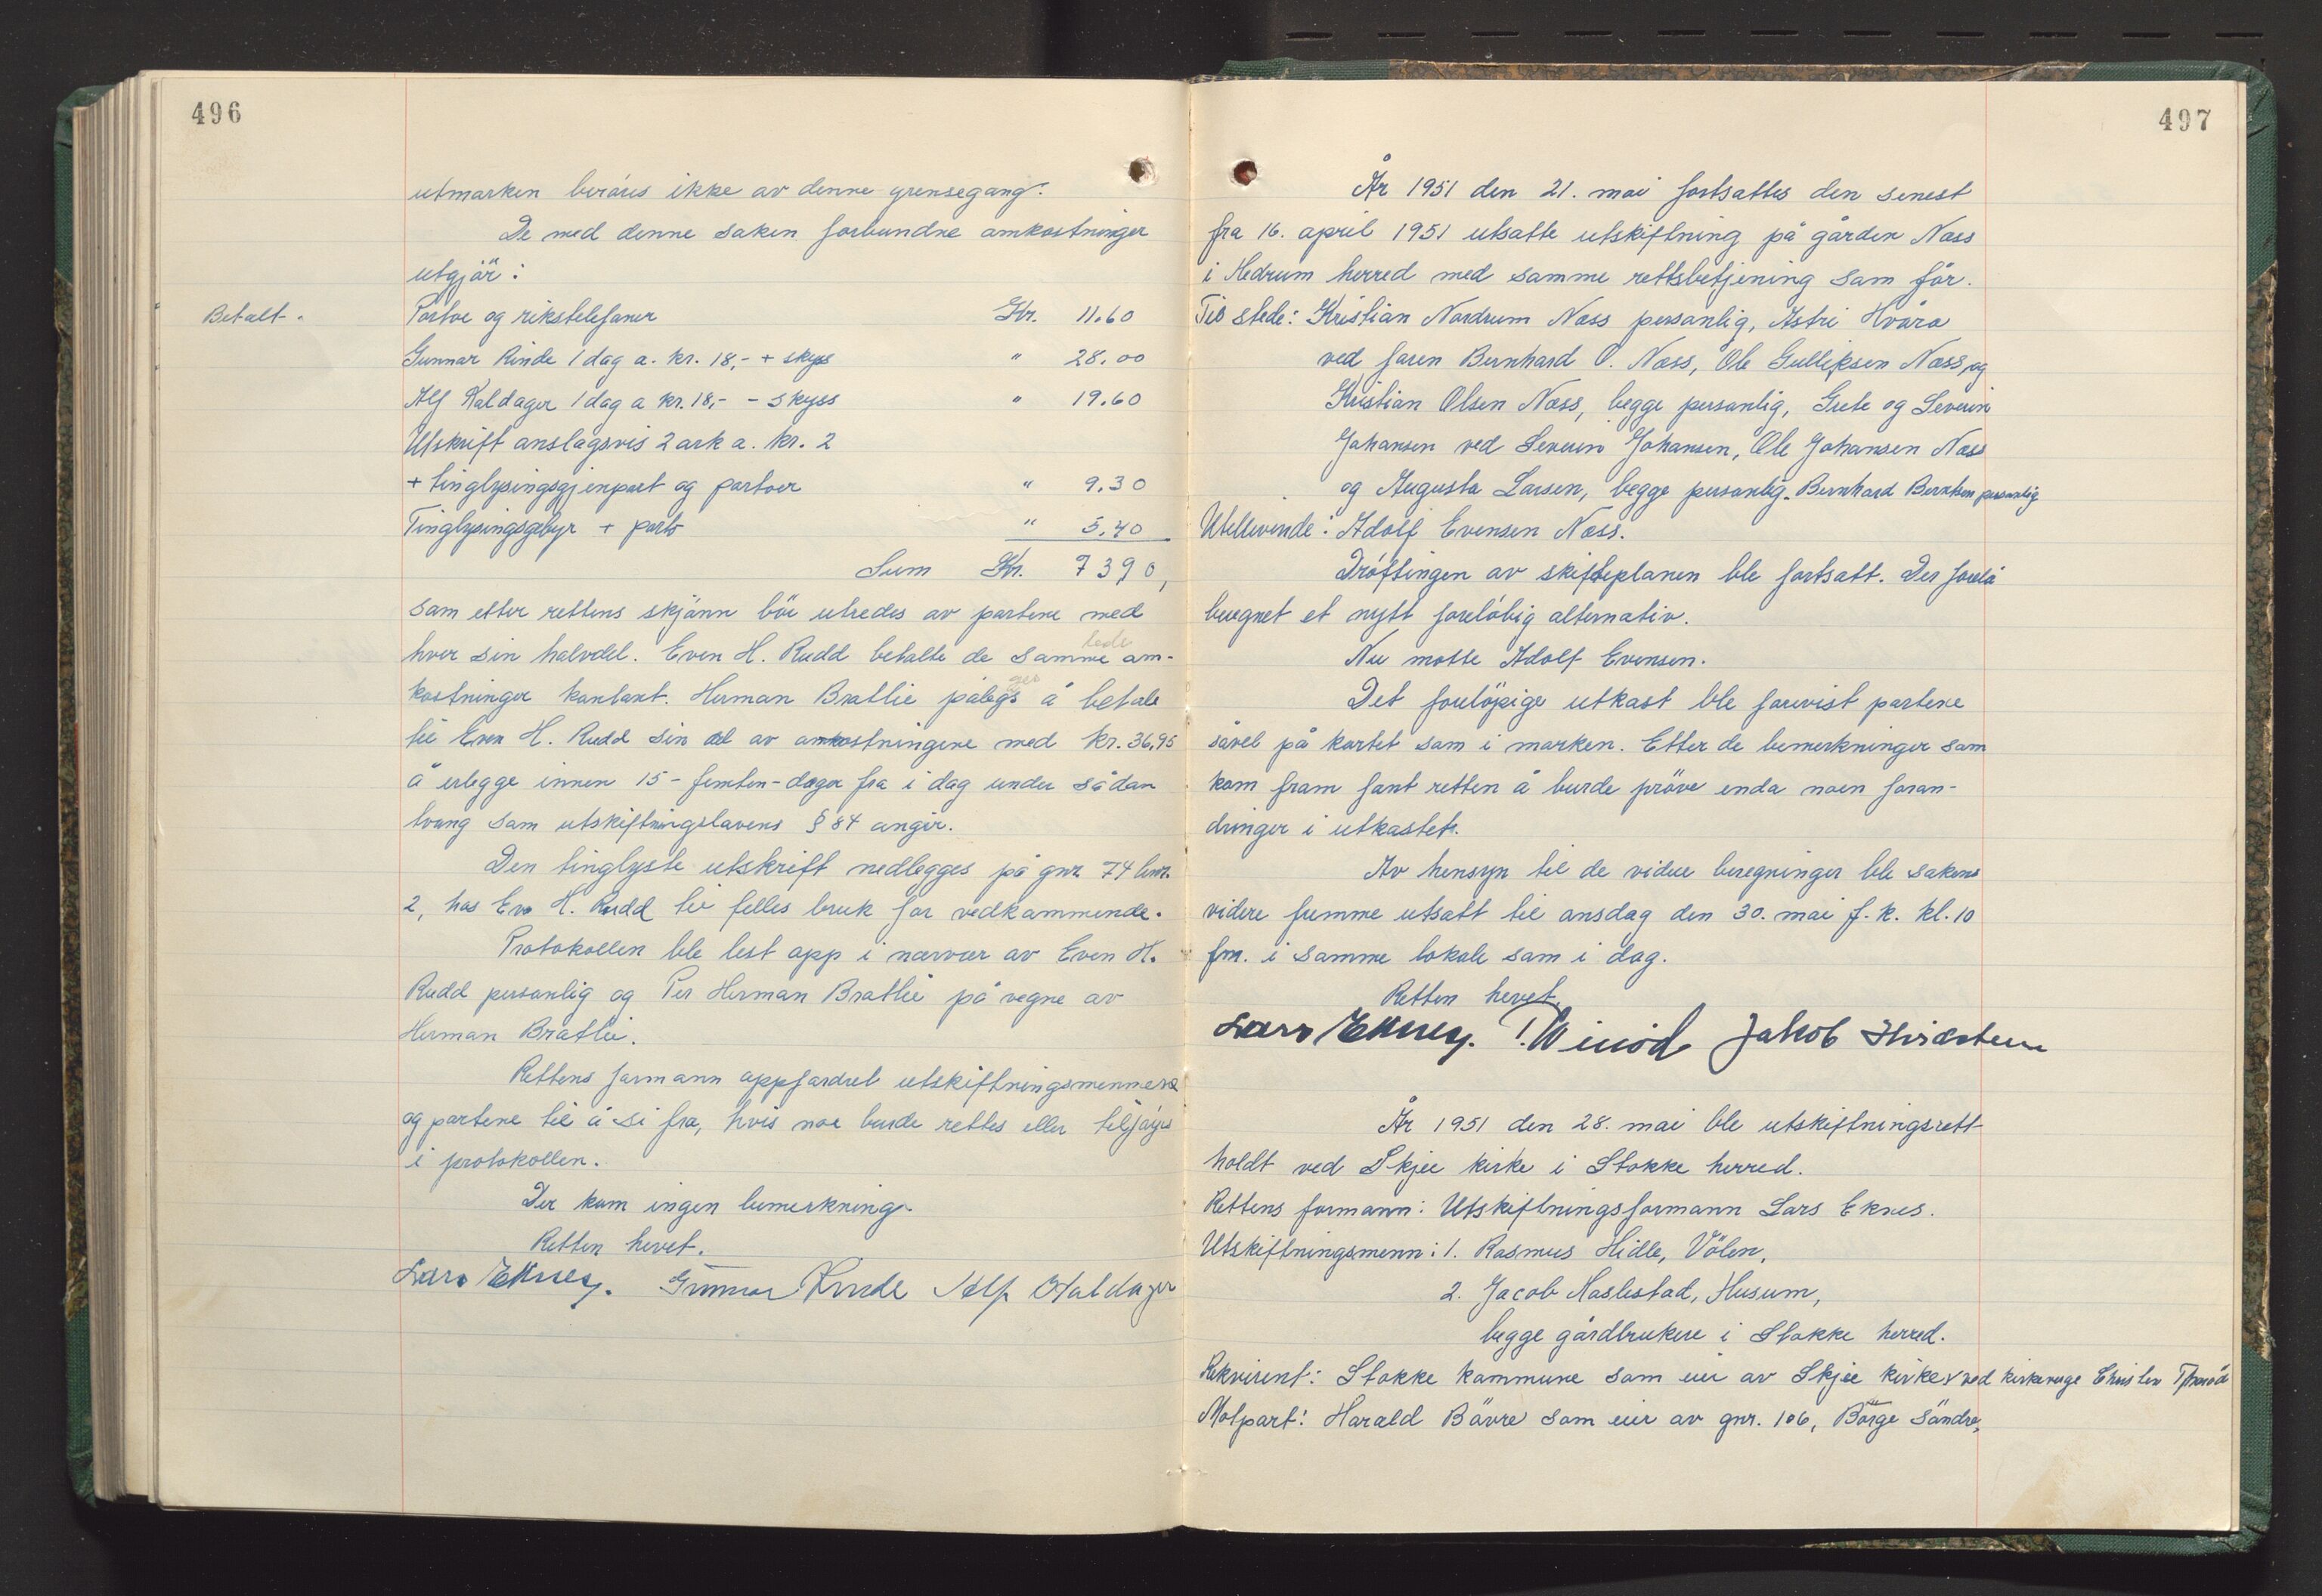 496
utmarken beröres ikke av denne grensegang.
De med denne saken forbundne omkostninger
utgjör:
Betalt.
Portoe og rikstelefoner Kr. 11.60
Gunnar Rinde 1 dag a. kr. 18,- + skyss " 28.00
Alf Haldager 1 dag a kr. 18,- - skyss " 19.60
Utskrift anslagsvis 2 ark a. kr. 2
+ tinglysingsgjenpart og portoer " 9.30
Tinglysingsgebyr + porto " 5.40
Sum Kr. 7390,
som etter rettens skjönn bör utredes av partene med
hver sin halvdel. Even H. Rudd betalte de samme om-
kostninger kontant. Herman Bratlie pålegs å betale
til Even H. Rudd sin del av omkostningene med kr. 36,95
å erlegge innen 15 - femten - dager fra i dag under sådan
tvang som utskiftningslovens § 84 angir.
Den tinglyste utskrift nedlegges på gnr. 74 bnr.
2, hos Even H. Rudd til felles bruk for vedkommende.
Protokollen ble lest opp i nærvær av Even H.
Rudd personlig og Per Herman Bratlie på vegne av
Herman Bratlie.
Rettens formann oppfordret utskiftningsmennene
og partene til å si fra, hvis noe burde rettes eller tilföyes
i protokollen.
Der kom ingen bemerkning.
Retten hevet.
Lars Eknes. Gunnar Rinde Alf Haldager
497
År 1951 den 21. mai fortsattes den senest
fra 16. april 1951 utsatte utskiftning på gården Næss
i Hedrum herred med samme rettsbetjening som för.
Til stede: Kristian Nordrum Næss personlig, Astri Hvåra
ved faren Bernhard O. Næss, Ole Gulliksen Næss og
Kristian Olsen Næss, begge personlig, Grete og Severin
Johansen ved Severin Johansen, Ole Johansen Næss
og Augusta Larsen, begge personlig. Bernhard Berntsen personlig
Uteblevende: Adolf Evensen Næss.
Dröftingen av skifteplanen ble fortsatt. Der forelå
beregnet et nytt forelöbig alternativ.
Nu møtte Adolf Evensen.
Det forelöpige utkast ble forevist partene
såvel på kartet som i marken. Etter de bemerkninger som
kom fram fant retten å burde pröve enda noen foran-
dringer i utkastet.
Av hensyn til de videre beregninger ble sakens
videre fremme utsatt til onsdag den 30. mai f. k. kl. 10
fm. i samme lokale som i dag.
Retten hevet.
Lars Eknes. Jakob
År 1951 den 28. mai ble utskiftningsrett
holdt ved Skjee kirke i Stokke herred.
Rettens formann: Utskiftningsformann Lars Eknes.
Utskiftningsmenn: 1. Rasmus Hidle, Völen,
2. Jacob Haslestad, Husum,
begge gårdbrukere i Stokke herred.
Rekvirent: Stokke kommune som eier av Skjee kirke ved kirkeverge
Motpart: Harald Bövre som eier av gnr. 106, Börge söndre,